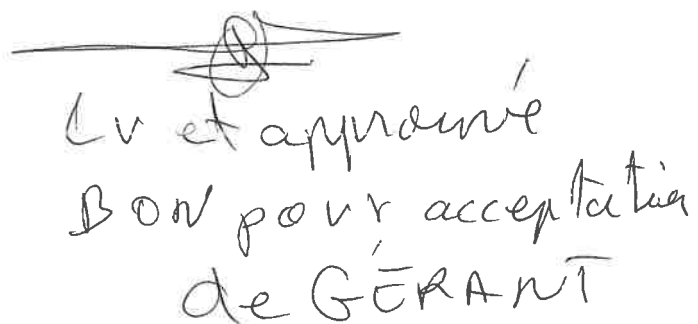 Lu et approuvé
BON pour acceptation
de GÉRANT